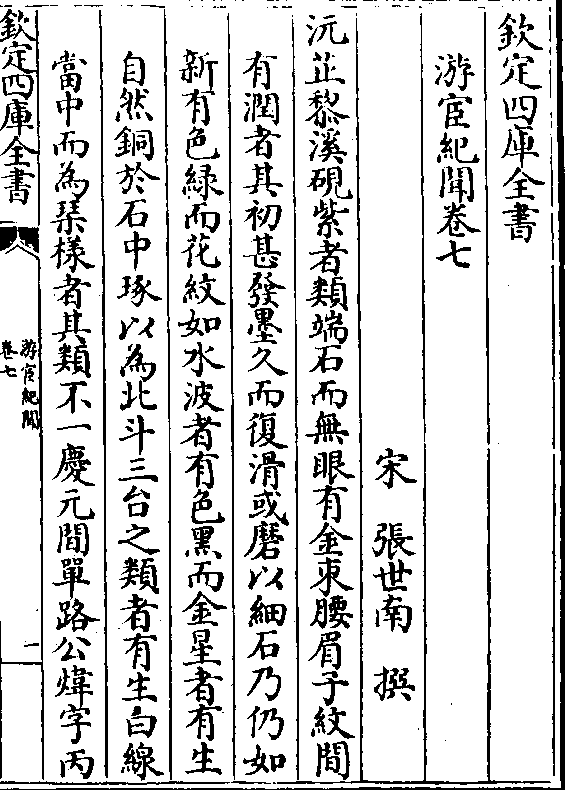 欽定四庫全書
游宦紀聞卷七
宋　張世南　撰
沅芷黎溪硯紫者類端石而無眼有金束腰眉子紋間
有潤者其初甚發墨久而復滑或磨以細石乃仍如
新有色緑而花紋如水波者有色黑而金星者有生
自然銅於石中琢以為北斗三台之類者有生白線
當中而為琹樣者其類不一慶元間單路公煒字丙
欽定四庫全書
游宦紀聞
卷七
一